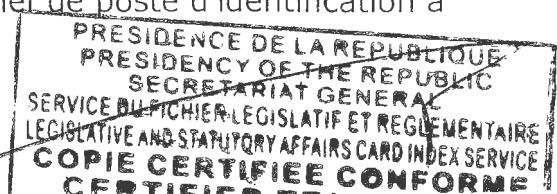 de poste d'identification a
PRESIDENCE DE LA REPUBLIQUE
PRESIDENCY OF THE REPUBLIC
SECRETARIAT GENERAL
SERVICE DU FICHIER LEGISLATIF ET REGLEMENTAIRE
LEGISLATIVE AND STATUTORY AFFAIRS CARD INDEX SERVICE
COPIE CERTIFIEE CONFORME